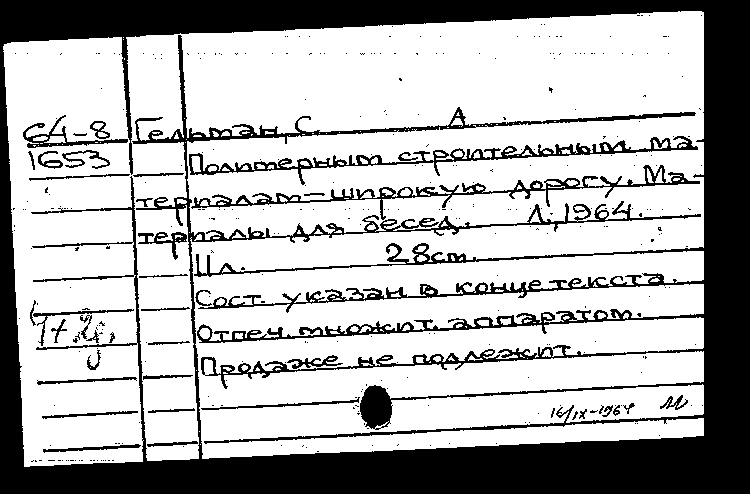 64-8 Гельман, С. А
1653 Полимерным строительным ма-
териалам-широкую дорогу. Ма-
териалы для бесед. Л., 1964.
11 л. 28 см.
Сост. указан в конце текста.
Отпеч. множит. аппаратом.
Продаже не подлежит.
16/IX-1964